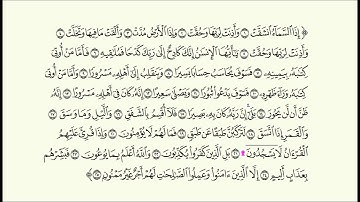 ﴿ إِذَا ٱلسَّمَآءُ ٱنشَقَّتۡ ١ وَأَذِنَتۡ لِرَبِّهَا وَحُقَّتۡ ٢ وَإِذَا ٱلۡأَرۡضُ مُدَّتۡ ٣ وَأَلۡقَتۡ مَا فِيهَا وَتَخَلَّتۡ ٤
وَأَذِنَتۡ لِرَبِّهَا وَحُقَّتۡ ٥ يَٰٓأَيُّهَا ٱلۡإِنسَٰنُ إِنَّكَ كَادِحٌ إِلَىٰ رَبِّكَ كَدۡحٗا فَمُلَٰقِيهِ ٦ فَأَمَّا مَنۡ أُوتِيَ
كِتَٰبَهُۥ بِيَمِينِهِۦ ٧ فَسَوۡفَ يُحَاسَبُ حِسَابٗا يَسِيرٗا ٨ وَيَنقَلِبُ إِلَىٰٓ أَهۡلِهِۦ مَسۡرُورٗا ٩ وَأَمَّا مَنۡ أُوتِيَ
كِتَٰبَهُۥ وَرَآءَ ظَهۡرِهِۦ ١٠ فَسَوۡفَ يَدۡعُواْ ثُبُورٗا ١١ وَيَصۡلَىٰ سَعِيرًا ١٢ إِنَّهُۥ كَانَ فِيٓ أَهۡلِهِۦ مَسۡرُورًا ١٣ إِنَّهُۥ
ظَنَّ أَن لَّن يَحُورَ ١٤ بَلَىٰٓۚ إِنَّ رَبَّهُۥ كَانَ بِهِۦ بَصِيرٗا ١٥ فَلَآ أُقۡسِمُ بِٱلشَّفَقِ ١٦ وَٱلَّيۡلِ وَمَا وَسَقَ ١٧
وَٱلۡقَمَرِ إِذَا ٱتَّسَقَ ١٨ لَتَرۡكَبُنَّ طَبَقًا عَن طَبَقٖ ١٩ فَمَا لَهُمۡ لَا يُؤۡمِنُونَ ٢٠ وَإِذَا قُرِئَ عَلَيۡهِمُ
ٱلۡقُرۡءَانُ لَا يَسۡجُدُونَۤ۩ ٢١ بَلِ ٱلَّذِينَ كَفَرُواْ يُكَذِّبُونَ ٢٢ وَٱللَّهُ أَعۡلَمُ بِمَا يُوعُونَ ٢٣ فَبَشِّرۡهُم
بِعَذَابٍ أَلِيمٍ ٢٤ إِلَّا ٱلَّذِينَ ءَامَنُواْ وَعَمِلُواْ ٱلصَّٰلِحَٰتِ لَهُمۡ أَجۡرٌ غَيۡرُ مَمۡنُونِۭ ٢٥ ﴾